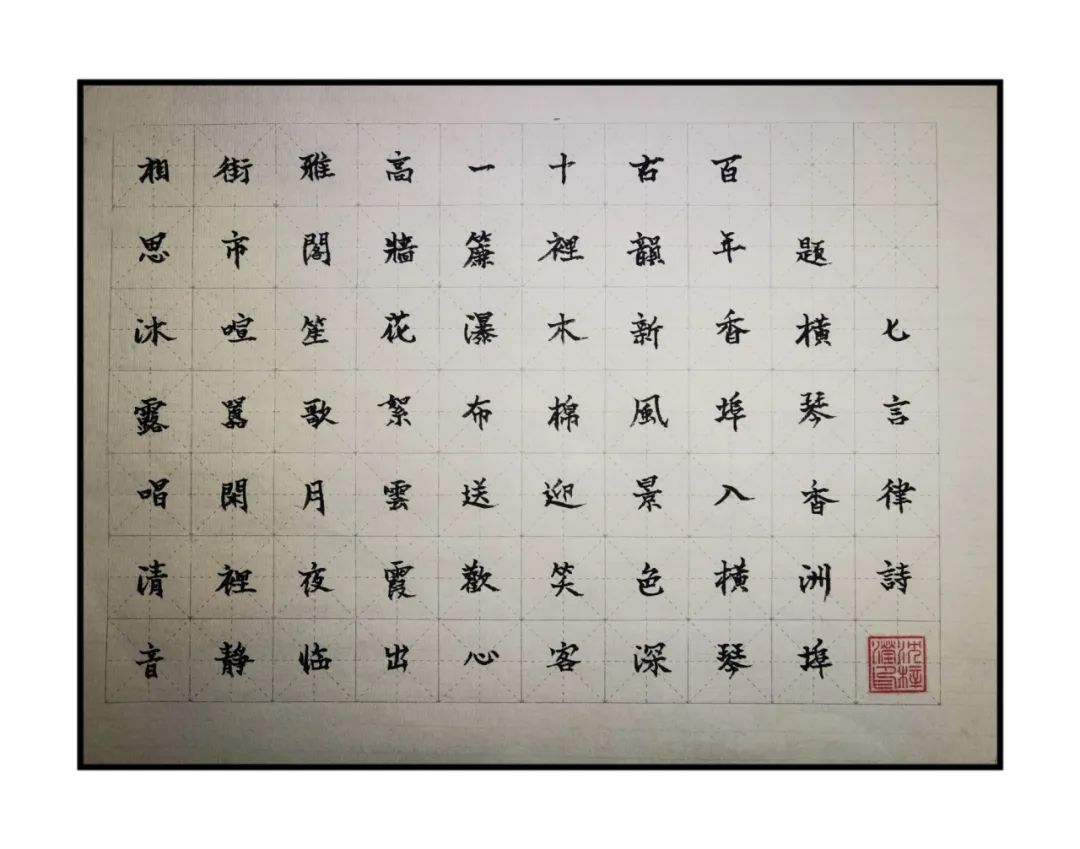 七言律詩
題橫琴香洲埠
百年香埠入橫琴
古韻新風景色深
十裡木棉迎笑客
一簾瀑布送歡心
高牆花絮雲霞出
雅閣笙歌月夜临
街市喧囂閑裡静
相思沐露唱清音